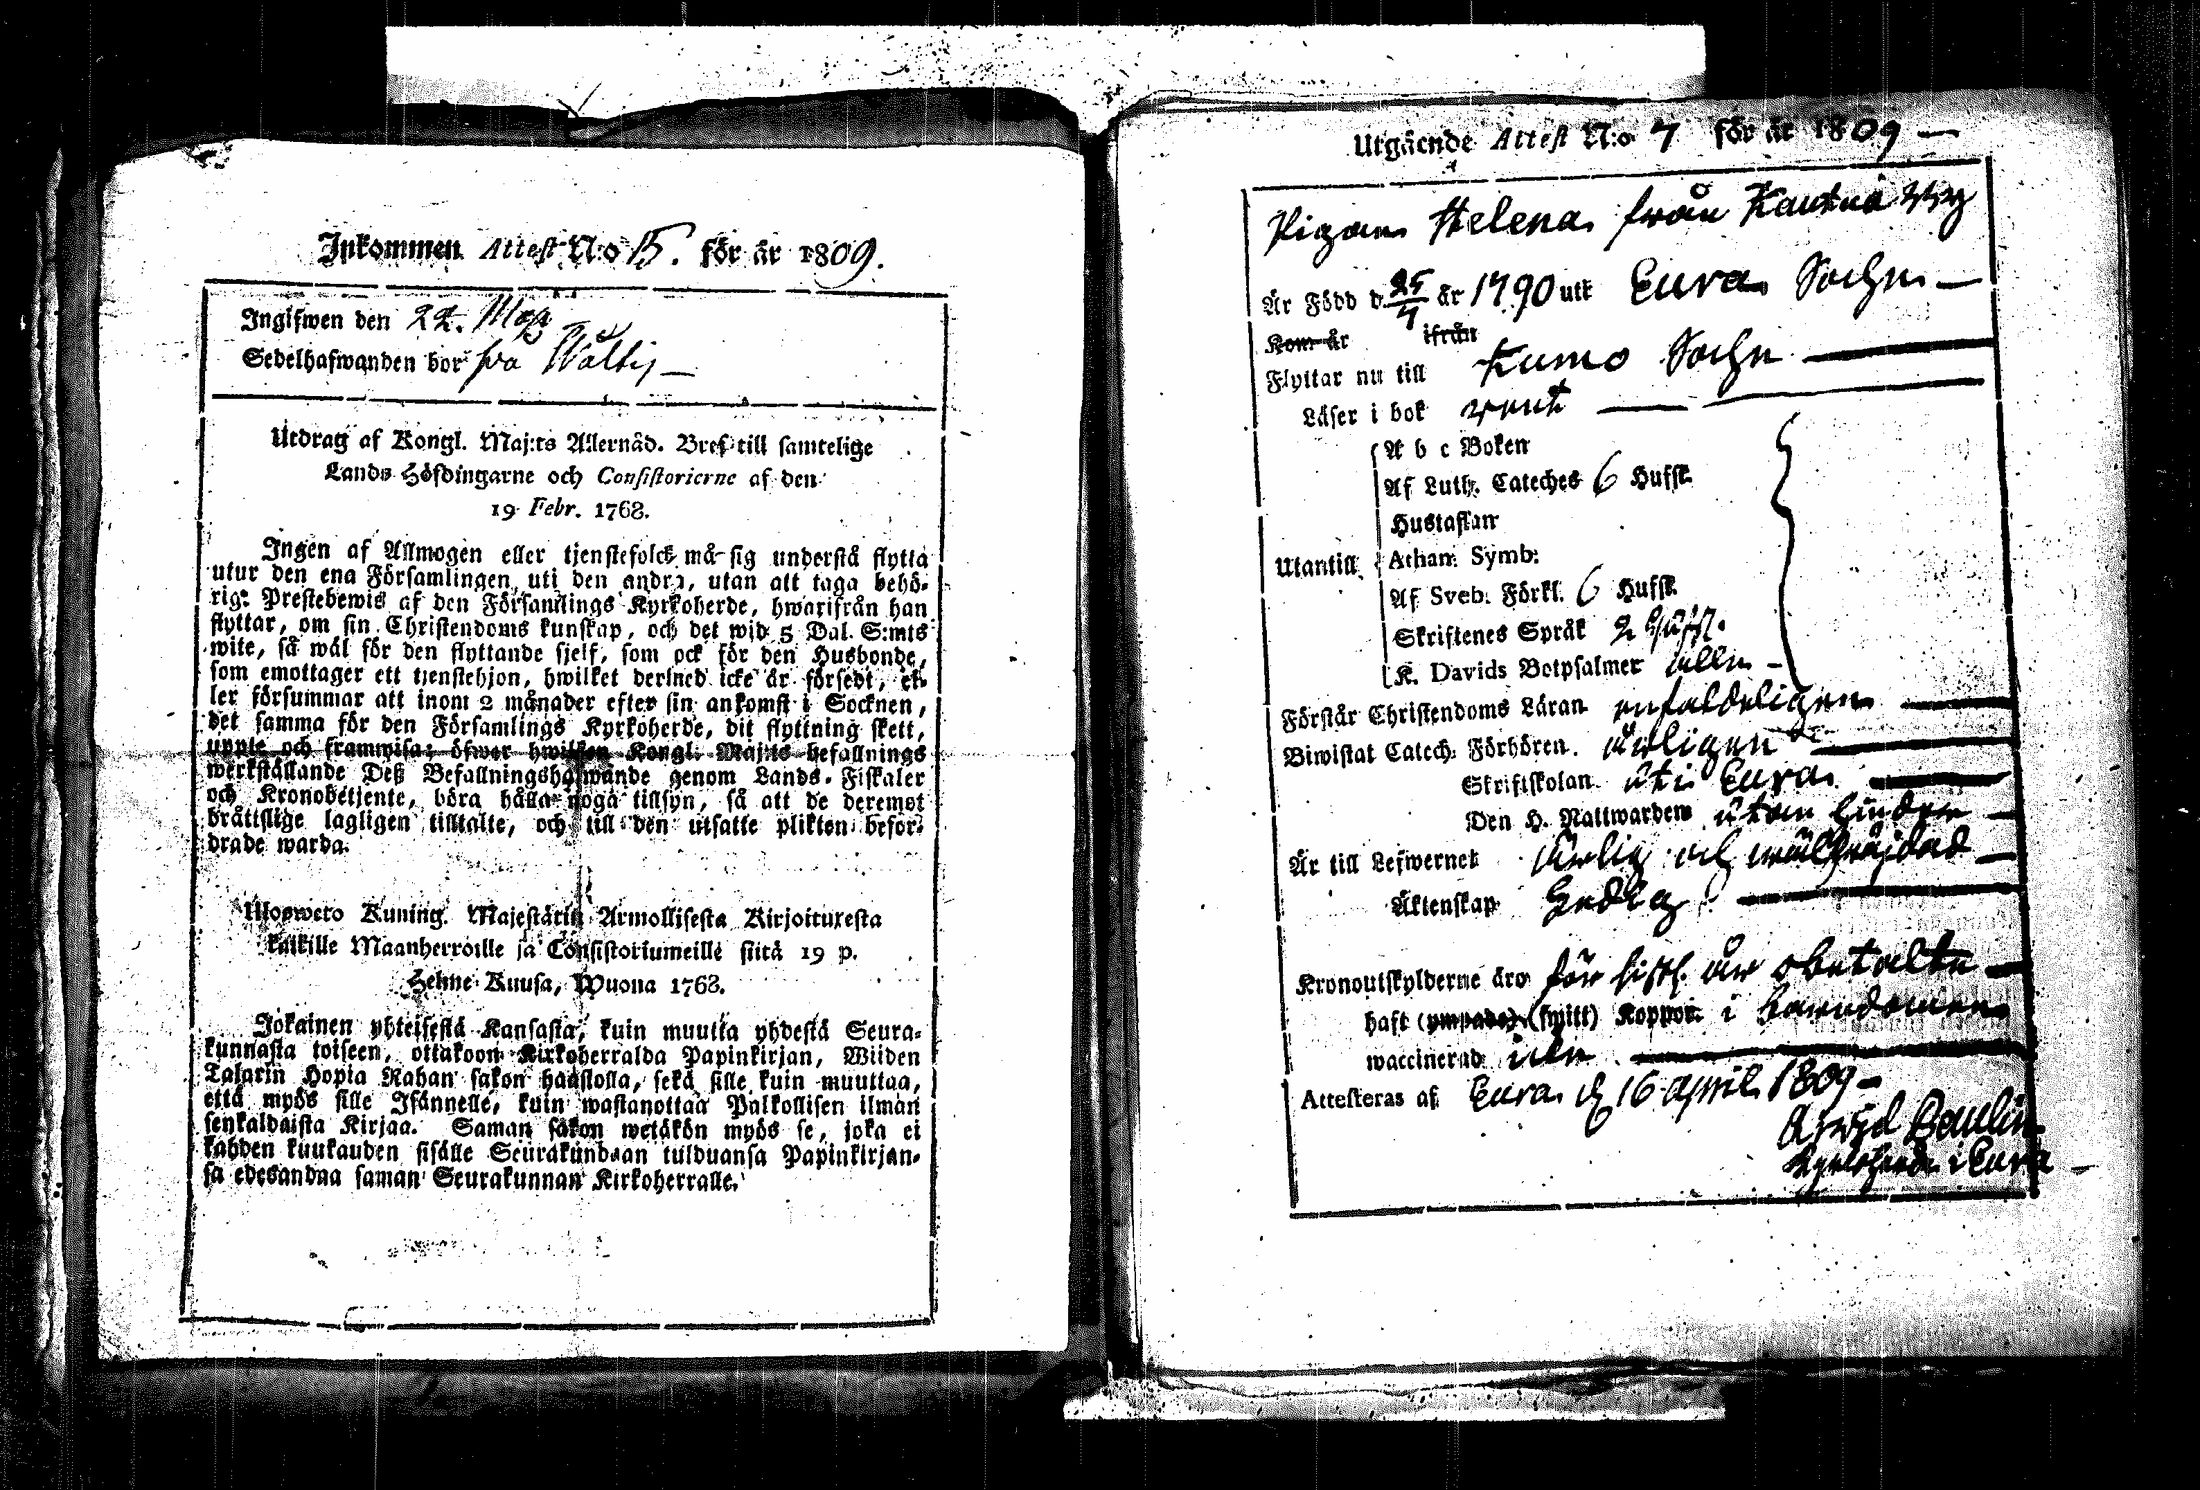 Inkommen Attest N:o 15. för år 1809.
Ingifwen den 22. Maji
Sedelhafwanden bor
Utdrag af Kongl. Maj:ts Allernåd. Bref till samtelige
Lands Höfdingarne och Consistorierne af den
19 Febr. 1768.
Ingen af Allmogen eller tjenstefolck må sig understå flytta
utur den ena Församlingen uti den andra, utan att taga behö-
rig: Prestebewis af den Församlings Kyrkoherde, hwarifrån han
flyttar, om sin Christendoms kunskap, och det wid 5 Dal. S:mts
wite, så wäl för den flyttande sjelf, som ock för den Husbonde,
som emottager ett tjenstehjon, hwilket dermed icke är försedt, el-
ler försummar att inom 2 månader efter sin ankomst i Socknen,
det samma för den Församlings Kyrkoherde, dit flyttning skett,
upple och framwisa; öfwer hwilken Kongl. Maj:ts befallnings
werkställande Deß Befallningshafwande genom Lands-Fiskaler
och Kronobetjente, böra hålla noga tillsyn, så att de deremot
bråttslige lagligen tilltalte, och till den utsatte plikten befor-
drade warda.
Uloswero Kuning. Majestätin Armollisesta Kirjoituxesta
kaikille Maanherroille ja Consistoriumeille siitä 19 p.
Helme Kuusa, Wuona 1768.
Jokainen yhteisestä Kansasta, kuin muutta yhdestä Seura-
kunnasta toiseen, ottakoon Kirkoherralda Papinkirjan, Wiiden
Talarin Hopia Rahan sakon haastolla, sekä sille kuin muuttaa,
että myös sille Isännelle, kuin wastanottaa Palkollisen ilman
senkaldaista Kirjaa. Saman sakon wetäkön myös se, joka ei
kahden kuukauden sisälle Seurakundaan tulduansa Papinkirjan-
sa edesandna saman Seurakunnan Kirkoherralle.
Utgående Attest N:o 7 för år 1809
Pigan Helena från Kautua By
Är Född d. 25/7 år 1790 uti Eura Sochn
Kom år ifrån
Flyttar nu till Kumo Sochn
Läser i bok rent
Utantill
A b c Boken
Af Luth. Cateches 6 Hufst.
Hustaflan
Athan. Symb:
Af Sveb. Förkl. 6 Hufst.
Skriftenes Språk 2 Hufst.
K. Davids Botpsalmer alla
Förstår Christendoms Läran enfaldeligen
Biwistat Catech. Förhören årligen
Skriftskolan uti Eura
Den H. Nattwarden utan hinder
Är till Lefwernet ärlig och wälfräjdad
Äktenskap ledig
Kronoutskylderne äro för sistl. år obetalte
haft (ympade) (switt) Koppor i barndomen
waccinerad icke
Attesteras af Eura d. 16 April 1809
Arwid Paulin
Kyrkoherde i Eura